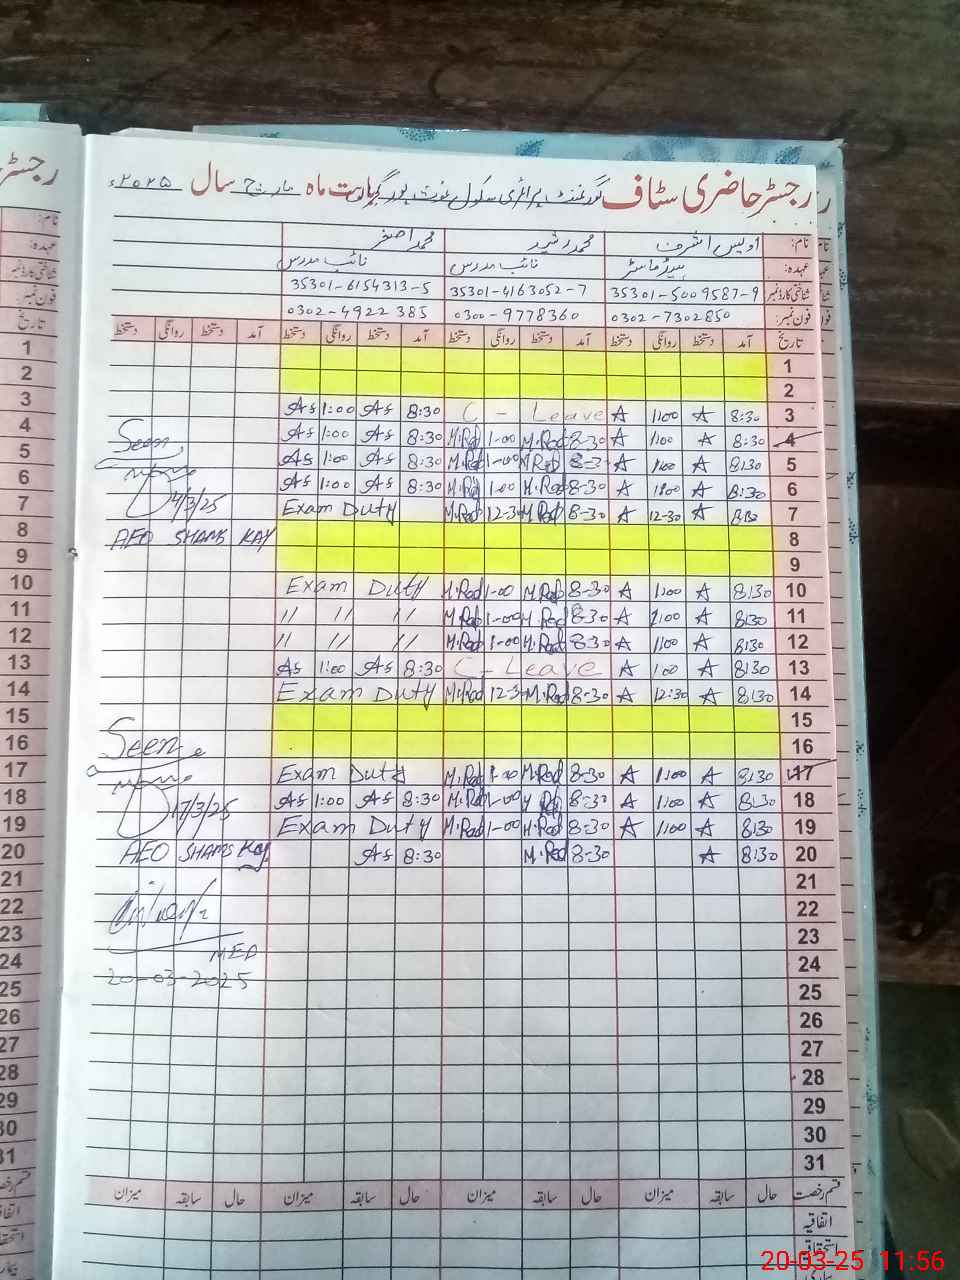 رجسٹر حاضری سٹاف گورنمنٹ پرائمری سکول غوث پور بابت ماہ مارچ سال ۲۰۲۵ء
نام: اویس اشرف محمد رشید محمد اصغر
عہدہ: ہیڈ ماسٹر نائب مدرس نائب مدرس
شناختی کارڈ نمبر 35301-5009587-9 35301-4163052-7 35301-6154313-5
فون نمبر: 0302-7302850 0300-9778360 0302-4922385
تاریخ آمد دستخط روانگی دستخط آمد دستخط روانگی دستخط آمد دستخط روانگی دستخط آمد دستخط روانگی دستخط
1 1
2 2
3 As 1:00 As 8:30 C - Leave A 1:00 A 8:30 3
4 As 1:00 As 8:30 1-00 8-30 A 1:00 A 8:30 4
Seen
5 As 1:00 As 8:30 1-00 8-3 A 1:00 A 8:30 5
6 As 1:00 As 8:30 1-00 8-30 A 1:00 A 8:30 6
7 4/3/25 Exam Duty 12-3 8-30 A 12-30 A 8:30 7
8 AEO SHAMS KAY 8
9 9
10 Exam Duty 1-00 8-30 A 1:00 A 8:30 10
11 " " " 1-00 8-30 A 1:00 A 8:30 11
12 " " " 1-00 8-30 A 1:00 A 8:30 12
13 As 1:00 As 8:30 C - Leave A 1:00 A 8:30 13
14 Exam Duty 12-3 8-30 A 12:30 A 8:30 14
15 15
16 Seen 16
17 Exam Duty 1-00 8-30 A 1:00 A 8:30 17
18 17/3/25 As 1:00 As 8:30 1-00 8-30 A 1:00 A 8:30 18
19 Exam Duty 1-00 8-30 A 1:00 A 8:30 19
20 AEO SHAMS KAY As 8:30 8-30 A 8:30 20
21 21
22 22
23 23
MED
24 24
20-03-2025
25 25
26 26
27 27
28 28
29 29
30 30
31 31
قسم رخصت حال سابقہ میزان حال سابقہ میزان حال سابقہ میزان حال سابقہ میزان
اتفاقیہ
استحقاقی
بیماری
20-03-25 11:56